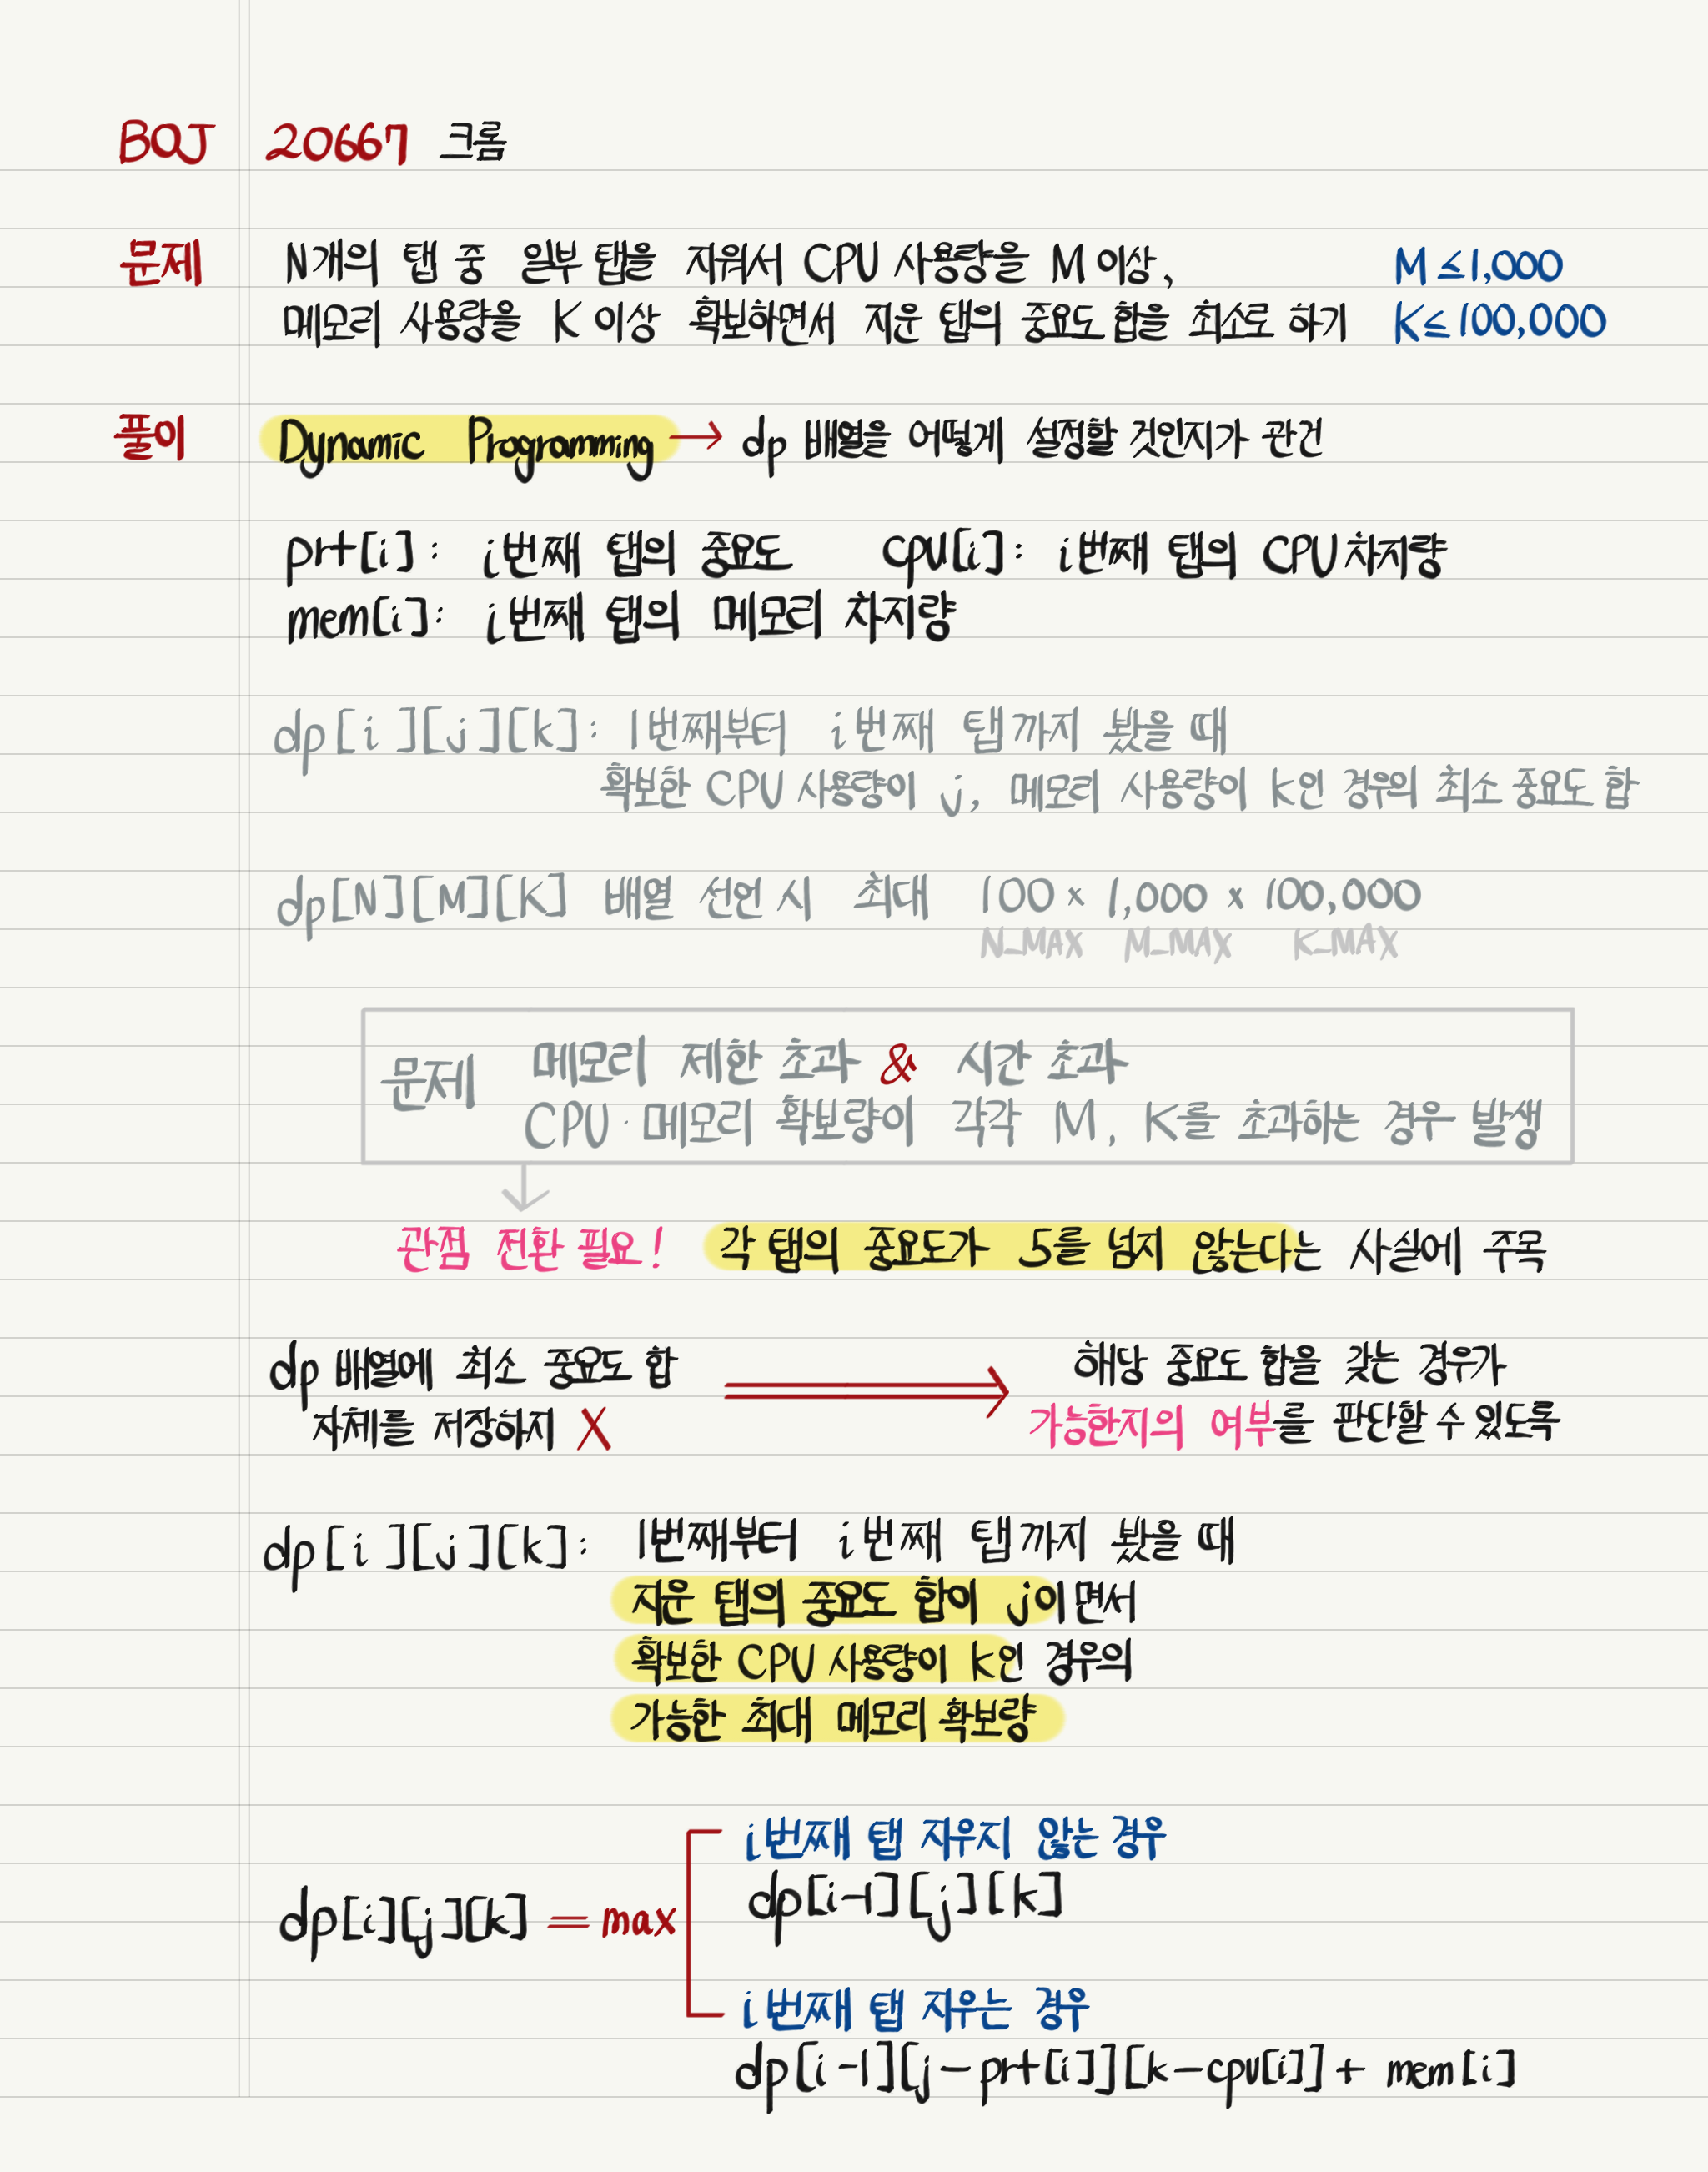 BOJ 20667 크롬
문제 N개의 탭 중 일부 탭을 지워서 CPU 사용량을 M 이상, M ≤ 1,000
메모리 사용량을 K 이상 확보하면서 지운 탭의 중요도 합을 최소로 하기 K ≤ 100,000
풀이 Dynamic Programming → dp 배열을 어떻게 설정할 것인지가 관건
prt[i] : i번째 탭의 중요도 cpu[i] : i번째 탭의 CPU 차지량
mem[i] : i번째 탭의 메모리 차지량
dp[i][j][k] : 1번째부터 i번째 탭까지 봤을 때
확보한 CPU 사용량이 j, 메모리 사용량이 k인 경우의 최소 중요도 합
dp[N][M][K] 배열 선언 시 최대 100 × 1,000 × 100,000
N_MAX M_MAX K_MAX
문제 메모리 제한 초과 & 시간 초과
CPU · 메모리 확보량이 각각 M, K를 초과하는 경우 발생
관점 전환 필요! 각 탭의 중요도가 5를 넘지 않는다는 사실에 주목
dp 배열에 최소 중요도 합 해당 중요도 합을 갖는 경우가
자체를 저장하지 X ⟹ 가능한지의 여부를 판단할 수 있도록
dp[i][j][k] : 1번째부터 i번째 탭까지 봤을 때
지운 탭의 중요도 합이 j이면서
확보한 CPU 사용량이 k인 경우의
가능한 최대 메모리 확보량
i번째 탭 지우지 않는 경우
dp[i-1][j][k]
dp[i][j][k] = max
i번째 탭 지우는 경우
dp[i-1][j-prt[i]][k-cpu[i]] + mem[i]